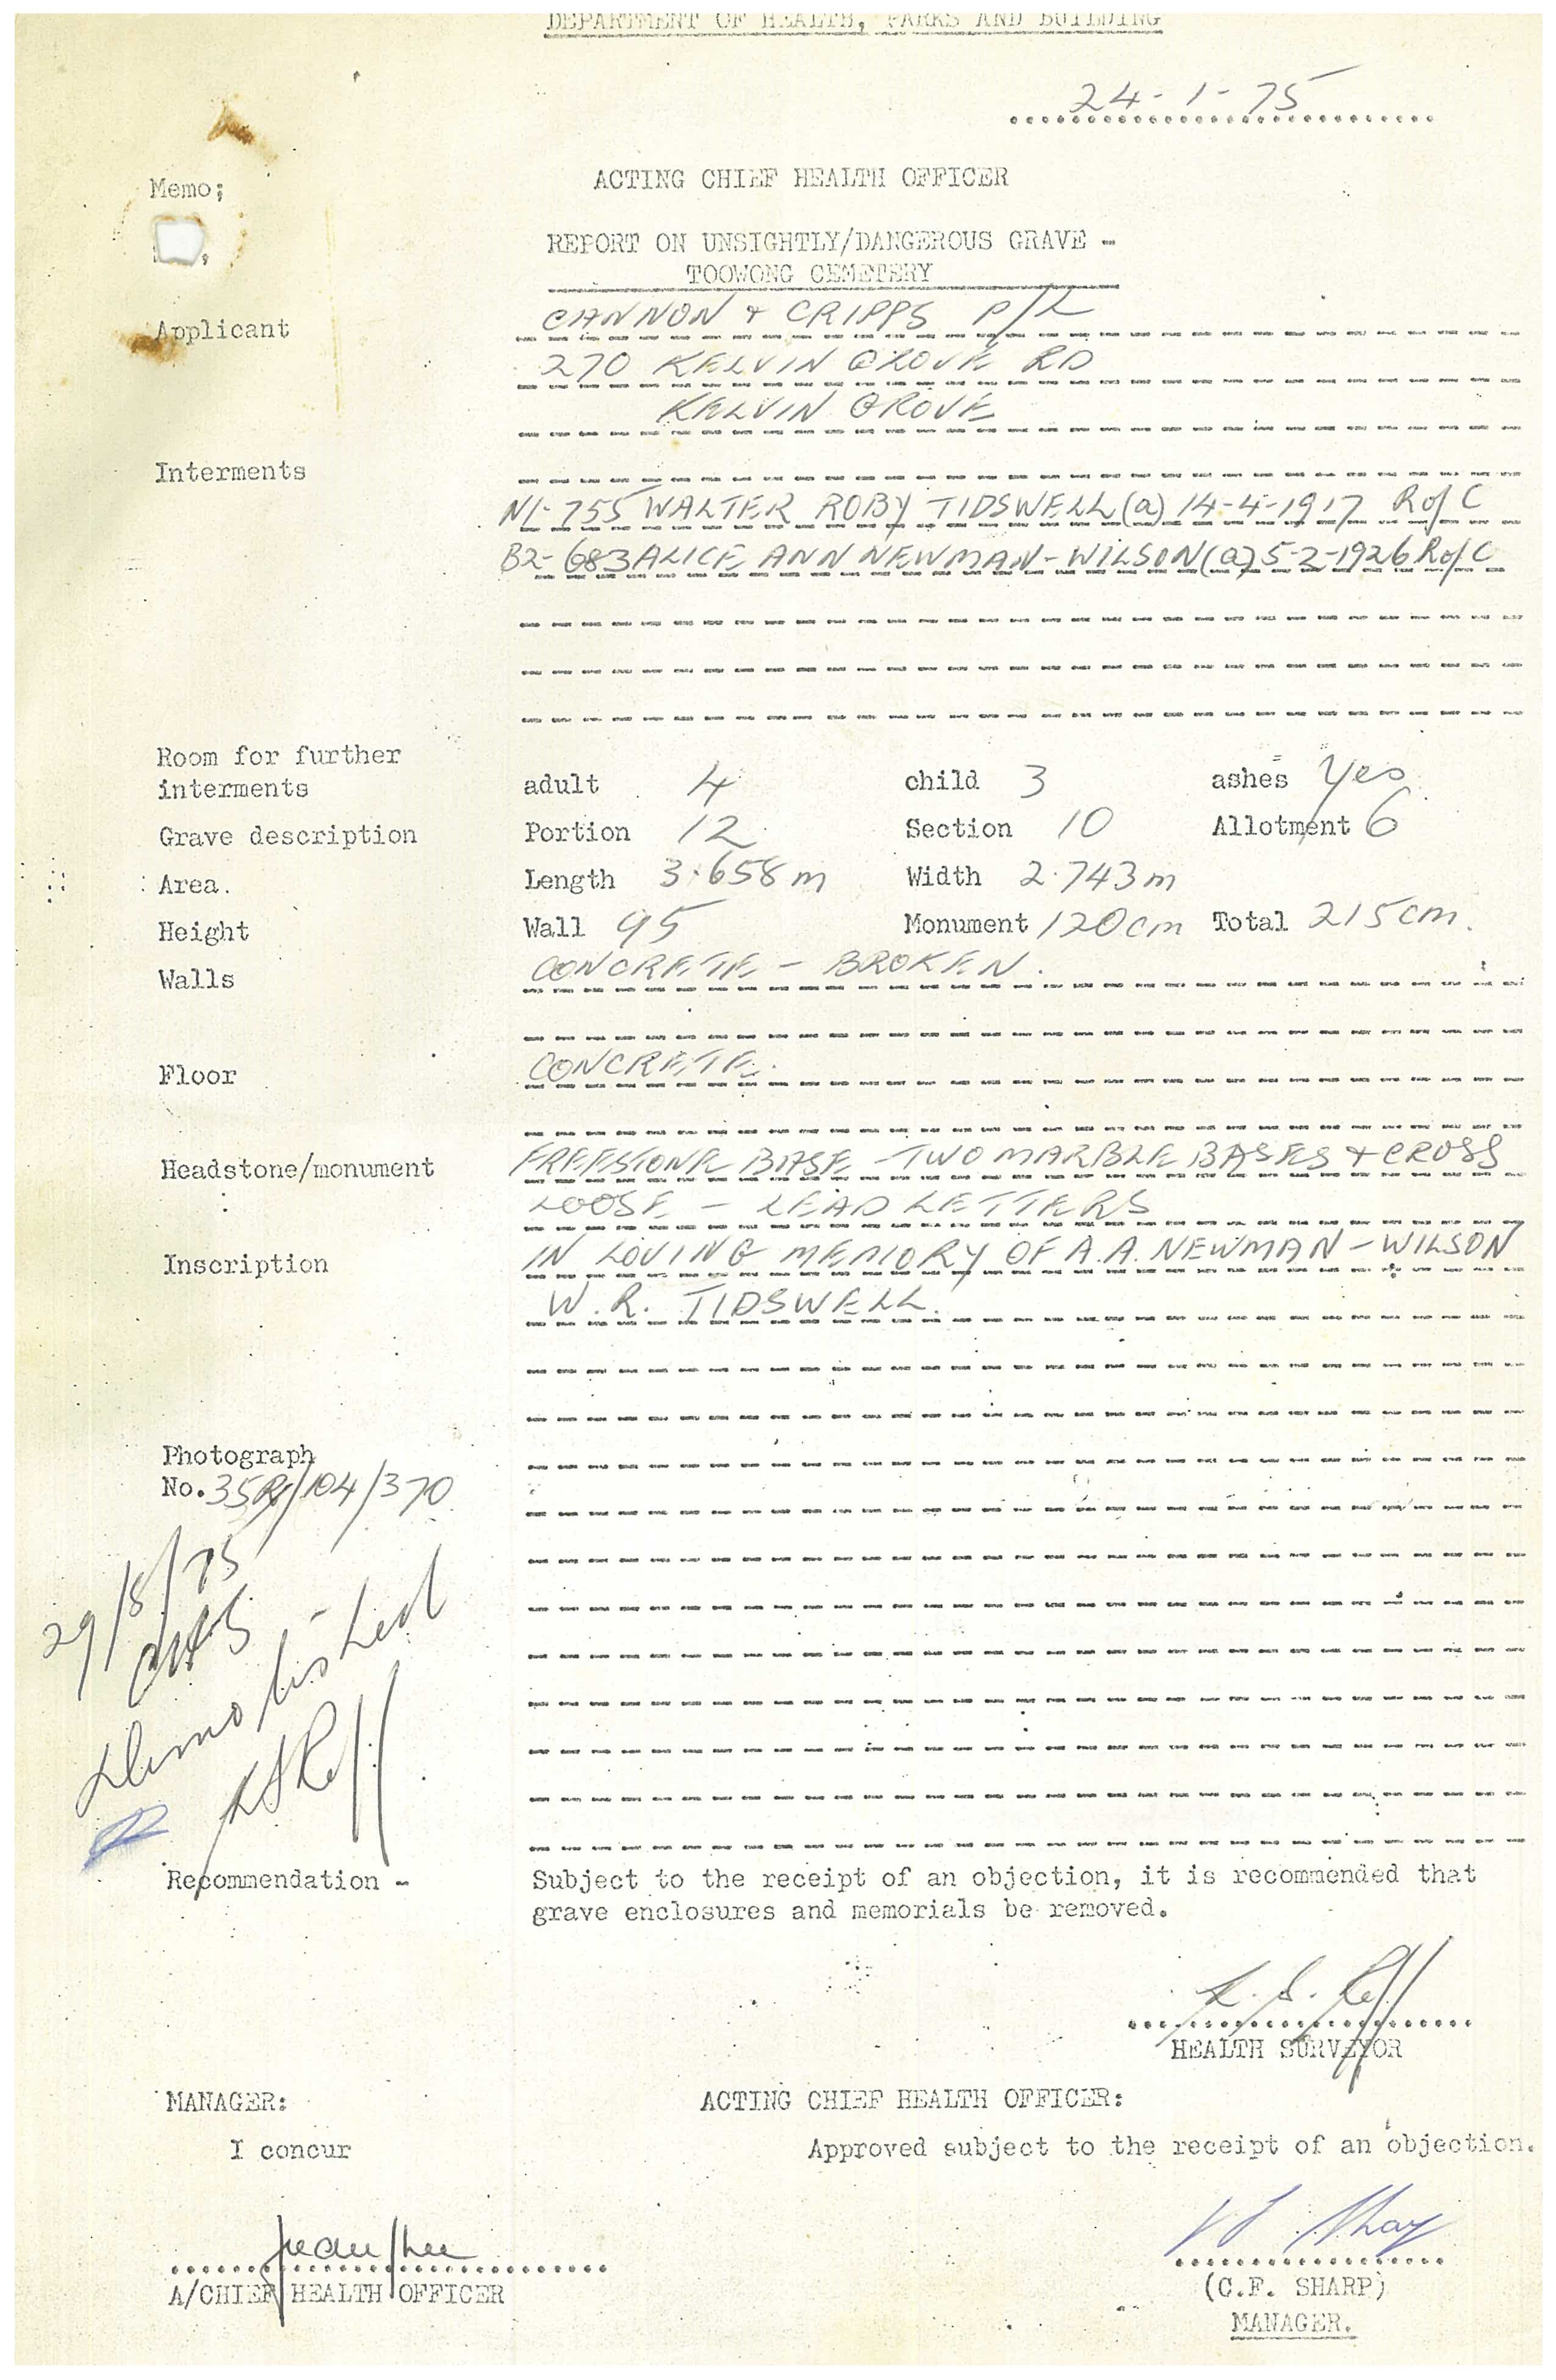 DEPARTMENT OF HEALTH, PARKS AND BUILDING
24-1-75
Memo;
ACTING CHIEF HEALTH OFFICER
REPORT ON UNSIGHTLY/DANGEROUS GRAVE -
TOOWONG CEMETERY
Applicant CANNON & CRIPPS P/L
270 KELVIN GROVE RD
KELVIN GROVE
Interments
N1-755 WALTER ROBY TIDSWELL (a) 14-4-1917 R of C
B2-683 ALICE ANN NEWMAN-WILSON (a) 5-2-1926 R of C
Room for further
interments adult 4 child 3 ashes Yes
Grave description Portion 12 Section 10 Allotment 6
Area. Length 3.658m Width 2.743m
Height Wall 95 Monument 120cm Total 215cm.
Walls CONCRETE - BROKEN.
Floor CONCRETE.
Headstone/monument FREESTONE BASE - TWO MARBLE BASES & CROSS
LOOSE - LEAD LETTERS
Inscription IN LOVING MEMORY OF A.A. NEWMAN-WILSON
W.R. TIDSWELL.
Photograph
No. 35R/104/370
29/8/75
Demolished
Recommendation - Subject to the receipt of an objection, it is recommended that
grave enclosures and memorials be removed.
HEALTH SURVEYOR
MANAGER: ACTING CHIEF HEALTH OFFICER:
I concur Approved subject to the receipt of an objection.
A/CHIEF HEALTH OFFICER (C.F. SHARP)
MANAGER.